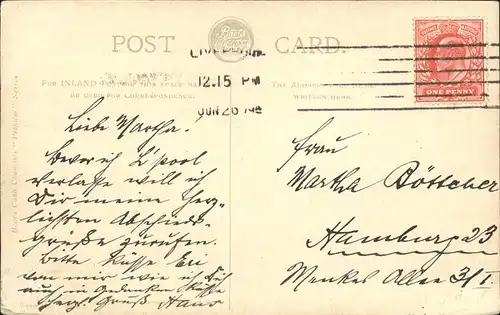 POST CARD.
LIVERPOOL
12.15 PM
JUN 26
FOR INLAND POSTAGE THIS SPACE MAY
BE USED FOR CORRESPONDENCE.
THE ADDRESS
WRITTEN HERE.
ONE PENNY
Liebe Martha.
Bevor ich L'pool
verlasse will ich
Dir meine herz-
lichsten Abschieds-
grüße zurufen.
Bitte küsse Eri
von mir wie ich Dich
auch in Gedanken küsse
herzl. Gruß Hans
Frau
Martha Böttcher
Hamburg 23
Menkes Allee 3/I.